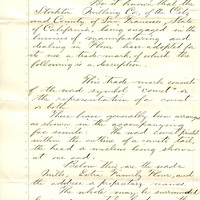 Be it known that the
Stockton Milling Co. of the City
and County of San Francisco, State
of California, being engaged in the
business of manufacturing and
dealing in Flour have adopted for
its use a trade-mark of which the
following is a description.
This trade mark consists
of the word symbol "comet" or
the representation of a comet
or both.
These have generally been arranged
as shown in the accompanying
fac simile: The word comet
within the outline of a comets tail,
the head a nucleus being shown
at one end.
Below this are the words
Extra Family Flour, and
the address & proprietary names.
The whole may be surrounded